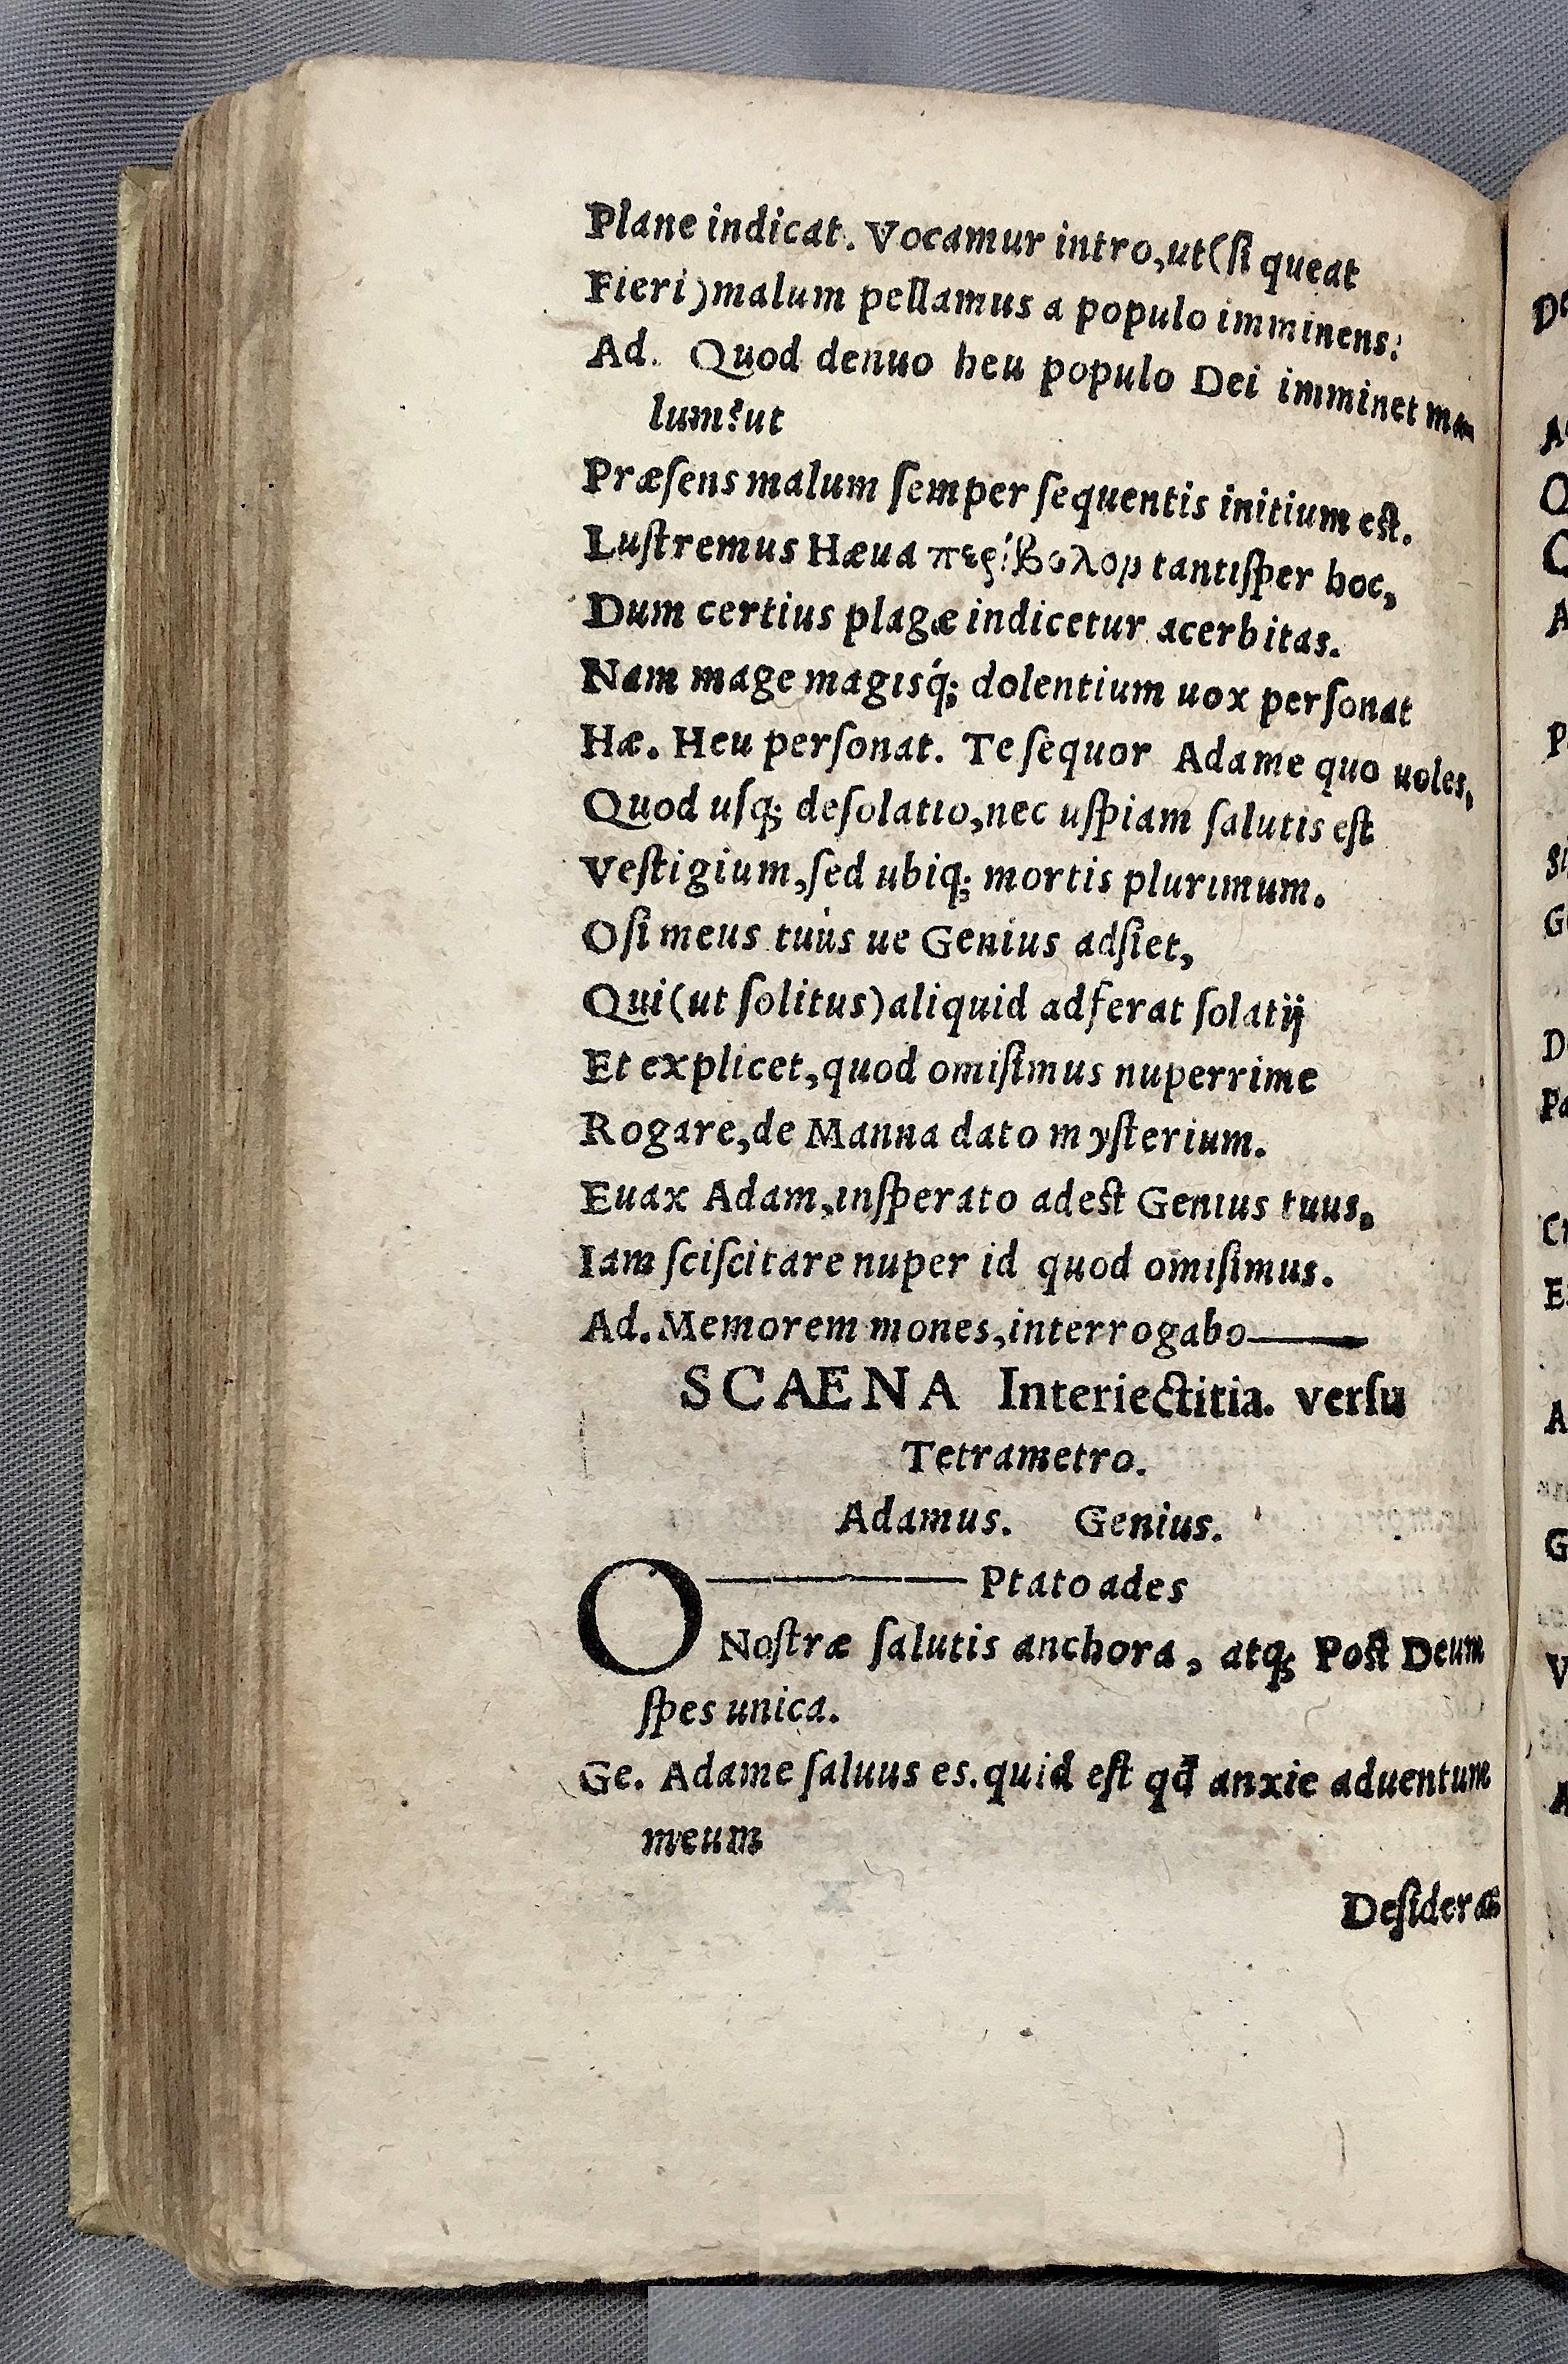 Plane indicat. Vocamur intro,ut(ſi queat
Fieri)malum pellamus a populo imminens:
Ad. Quod denuo heu populo Dei imminet ma-
lum?ut
Præſens malum ſemper ſequentis initium eſt.
Luſtremus Hæua περίβολον tantiſper hoc,
Dum certius plagæ indicetur acerbitas.
Nam mage magisq́; dolentium uox perſonat
Hæ. Heu perſonat. Te ſequor Adame quo uoles,
Quod uſq; deſolatio,nec uſpiam ſalutis eſt
Veſtigium,ſed ubiq; mortis plurimum.
O ſi meus tuus ue Genius adſiet,
Qui(ut ſolitus)aliquid adferat ſolatij
Et explicet,quod omiſimus nuperrime
Rogare,de Manna dato myſterium.
Euax Adam,inſperato adeſt Genius tuus.
Iam ſciſcitare nuper id quod omiſimus.
Ad. Memorem mones,interrogabo——
SCAENA Interiectitia. verſu
Tetrametro.
Adamus. Genius.
O——Ptato ades
Noſtræ ſalutis anchora, atq; Poſt Deum
ſpes unica.
Ge. Adame ſaluus es.quid eſt qđ anxie aduentum
meum
Deſideras